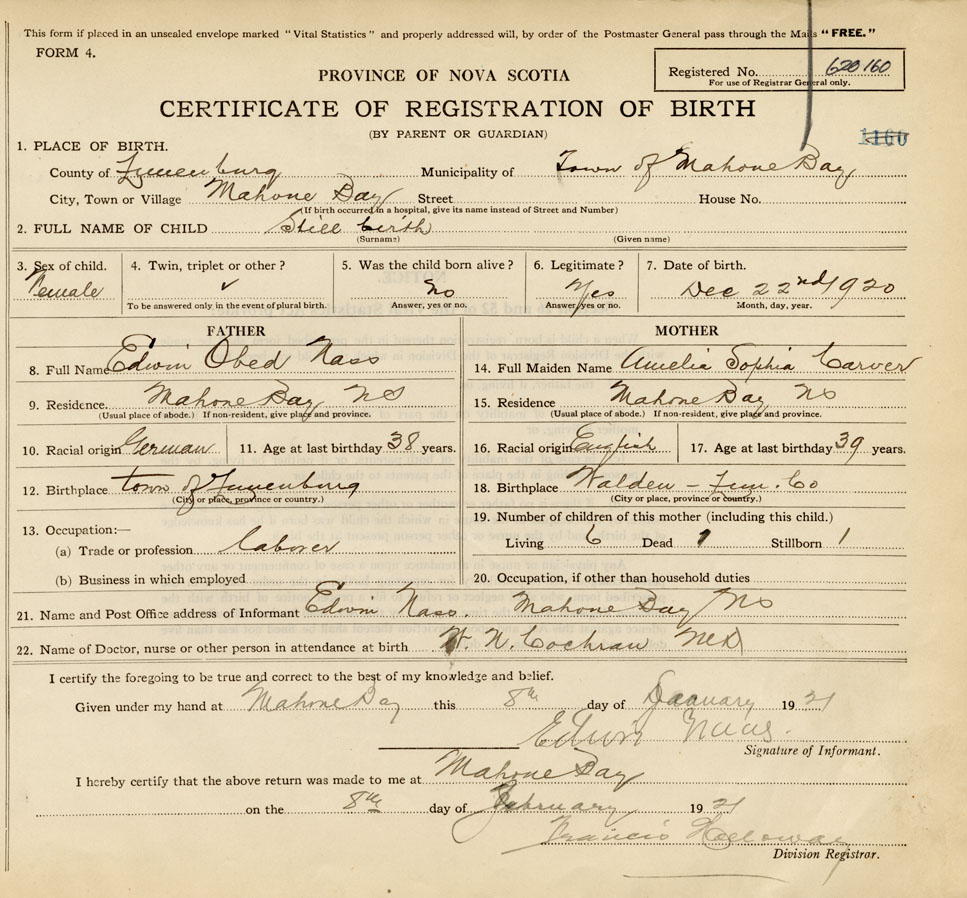 This form if placed in an unsealed envelope marked "Vital Statistics" and properly addressed will, by order of the Postmaster General pass through the Mails "FREE."
FORM 4.
PROVINCE OF NOVA SCOTIA
Registered No. 620160
For use of Registrar General only.
CERTIFICATE OF REGISTRATION OF BIRTH
(BY PARENT OR GUARDIAN)
1160
1. PLACE OF BIRTH.
County of Lunenburg Municipality of Town of Mahone Bay
City, Town or Village Mahone Bay Street House No.
(If birth occurred in a hospital, give its name instead of Street and Number)
2. FULL NAME OF CHILD Still birth
(Surname) (Given name)
3. Sex of child. 4. Twin, triplet or other? 5. Was the child born alive? 6. Legitimate? 7. Date of birth.
Female ✓ No Yes Dec 22nd 1920
To be answered only in the event of plural birth. Answer, yes or no. Answer, yes or no. Month, day, year.
FATHER MOTHER
8. Full Name Edwin Obed Nass 14. Full Maiden Name Amelia Sophia Carver
9. Residence. Mahone Bay NS 15. Residence Mahone Bay NS
(Usual place of abode.) If non-resident, give place and province. (Usual place of abode.) If non-resident, give place and province.
10. Racial origin German 11. Age at last birthday 38 years. 16. Racial origin English 17. Age at last birthday 39 years.
12. Birthplace town of Lunenburg 18. Birthplace Walden - Lun. Co
(City or place, province or country.) (City or place, province or country.)
13. Occupation:— 19. Number of children of this mother (including this child.)
(a) Trade or profession laborer Living 6 Dead Stillborn 1
(b) Business in which employed 20. Occupation, if other than household duties
21. Name and Post Office address of Informant Edwin Nass. Mahone Bay NS
22. Name of Doctor, nurse or other person in attendance at birth W. N. Cochran MD
I certify the foregoing to be true and correct to the best of my knowledge and belief.
Given under my hand at Mahone Bay this 8th day of January 1921
Edwin Naas.
Signature of Informant.
I hereby certify that the above return was made to me at Mahone Bay
on the 8th day of February 1921
Francis Holloway
Division Registrar.